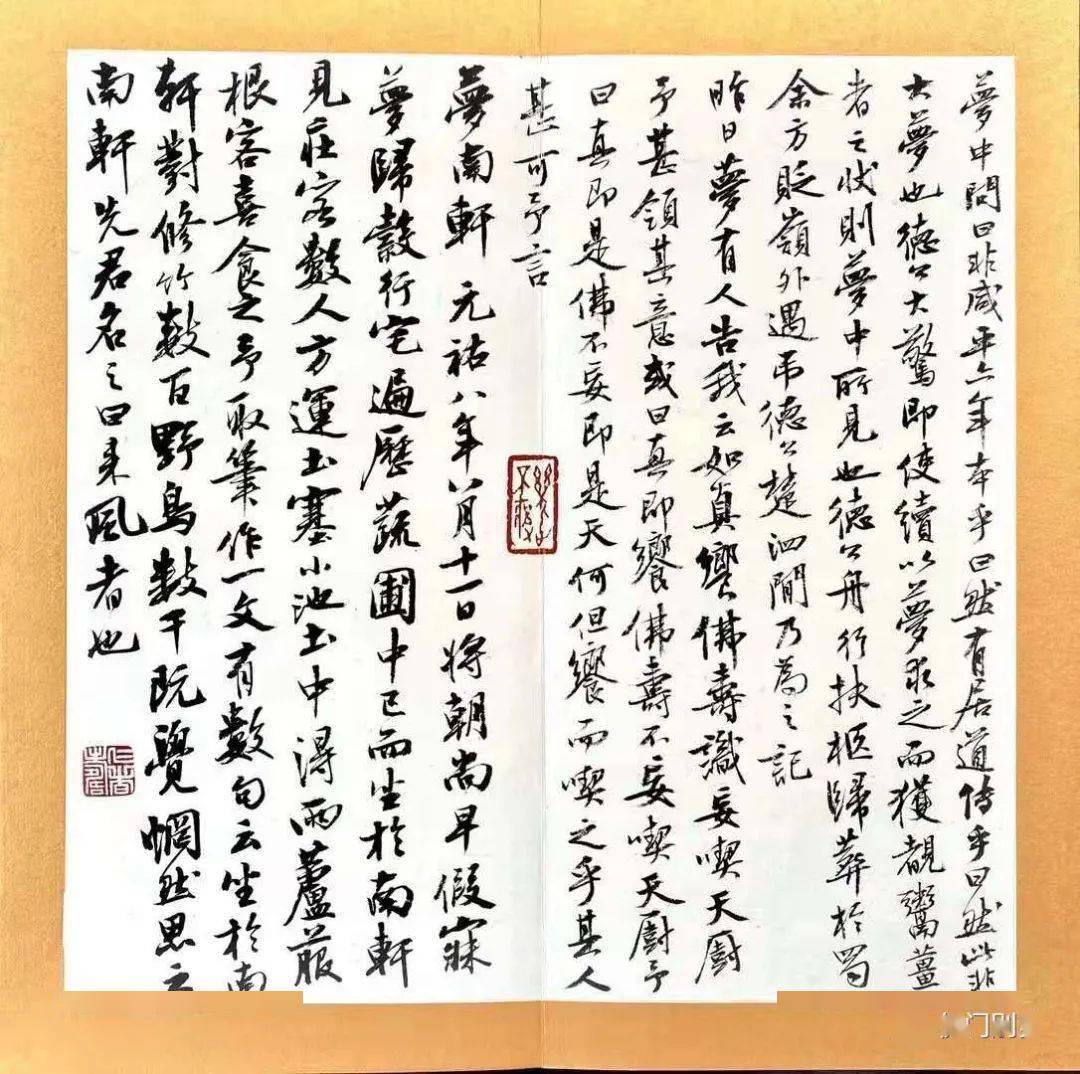 夢中問曰非咸平六年本乎曰然有居道傳乎曰然此非
大夢也德公大驚即使續以夢求之而獲覩鬻薑
者之狀則夢中所見也德公舟行扶柩歸葬於蜀
余方貶嶺外遇弔德公楚泗間乃為之記
昨日夢有人告我云如真饗佛壽識妄喫天廚
予甚領其意或曰真即饗佛壽不妄喫天廚予
曰真即是佛不妄即是天何但饗而喫之乎其人
甚可予言
夢南軒 元祐八年八月十一日將朝尚早假寐
夢歸縠行宅遍歷蔬圃中已而坐於南軒
見莊客數人方運土塞小池土中得兩蘆菔
根客喜食之予取筆作一文有數句云坐於南
軒對修竹數百野鳥數千既覺惘然思之
南軒先君名之曰來風者也